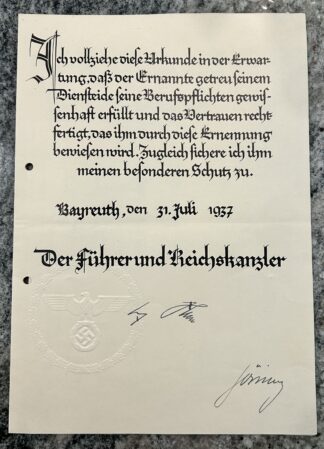 Ich vollziehe diese Urkunde in der Erwar-
tung, daß der Ernannte getreu seinem
Diensteide seine Berufspflichten gewis-
senhaft erfüllt und das Vertrauen recht-
fertigt, das ihm durch diese Ernennung
bewiesen wird. Zugleich sichere ich ihm
meinen besonderen Schutz zu.
Bayreuth, den 31. Juli 1937
Der Führer und Reichskanzler
Göring